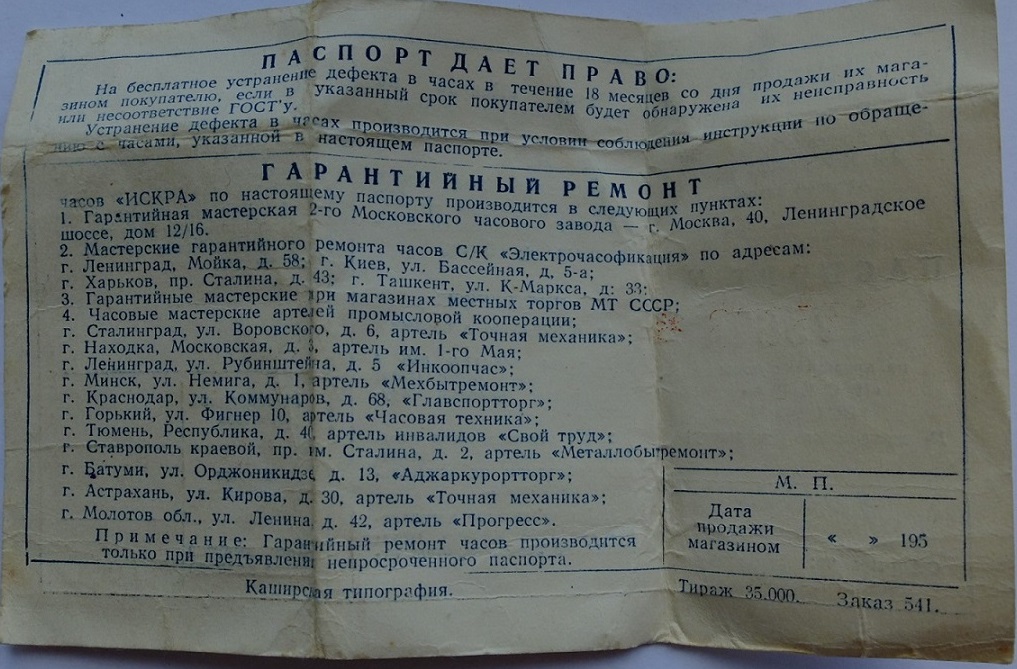 ПАСПОРТ ДАЕТ ПРАВО:
На бесплатное устранение дефекта в часах в течение 18 месяцев со дня продажи их мага-
зином покупателю, если в указанный срок покупателем будет обнаружена их неисправность
или несоответствие ГОСТ'у.
Устранение дефекта в часах производится при условии соблюдения инструкции по обраще-
нию с часами, указанной в настоящем паспорте.
ГАРАНТИЙНЫЙ РЕМОНТ
часов «ИСКРА» по настоящему паспорту производится в следующих пунктах:
1. Гарантийная мастерская 2-го Московского часового завода — г. Москва, 40, Ленинградское
шоссе, дом 12/16.
2. Мастерские гарантийного ремонта часов С/К «Электрочасофикация» по адресам:
г. Ленинград, Мойка, д. 58; г. Киев, ул. Бассейная, д, 5-а;
г. Харьков, пр. Сталина, д. 43; г. Ташкент, ул. К-Маркса, д: 33;
3. Гарантийные мастерские при магазинах местных торгов МТ СССР;
4. Часовые мастерские артелей промысловой кооперации;
г. Сталинград, ул. Воровского, д. 6, артель «Точная механика»;
г. Находка, Московская, д. 3, артель им. 1-го Мая;
г. Ленинград, ул. Рубинштейна, д. 5 «Инкоопчас»;
г. Минск, ул. Немига, д. 1, артель «Мехбытремонт»;
г. Краснодар, ул. Коммунаров, д. 68, «Главспортторг»;
г. Горький, ул. Фигнер 10, артель «Часовая техника»;
г. Тюмень, Республика, д. 40, артель инвалидов «Свой труд»;
г. Ставрополь краевой, пр. им. Сталина, д. 2, артель «Металлобытремонт»;
г. Батуми, ул. Орджоникидзе д. 13, «Аджаркурортторг»;
г. Астрахань, ул. Кирова, д. 30, артель «Точная механика»;
г. Молотов обл., ул. Ленина, д. 42, артель «Прогресс».
Примечание: Гарантийный ремонт часов производится
только при предъявлении непросроченного паспорта.
М. П.
Дата
продажи
магазином
« » 195
Каширская типография.
Тираж 35.000. Заказ 541.